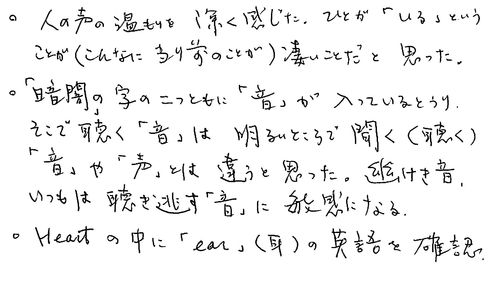 ○ 人の声の温もりを深く感じた。ひとが「いる」という
ことが(こんなに当り前のことが)凄いことだと思った。
○「暗闇」の字の二つともに「音」が入っているとおり、
そこで聴く「音」は明るいところで聞く(聴く)
「音」や「声」とは違うと思った。幽けき音、
いつもは聴き逃す「音」に敏感になる。
○ Heartの中に「ear」(耳)の英語を確認。